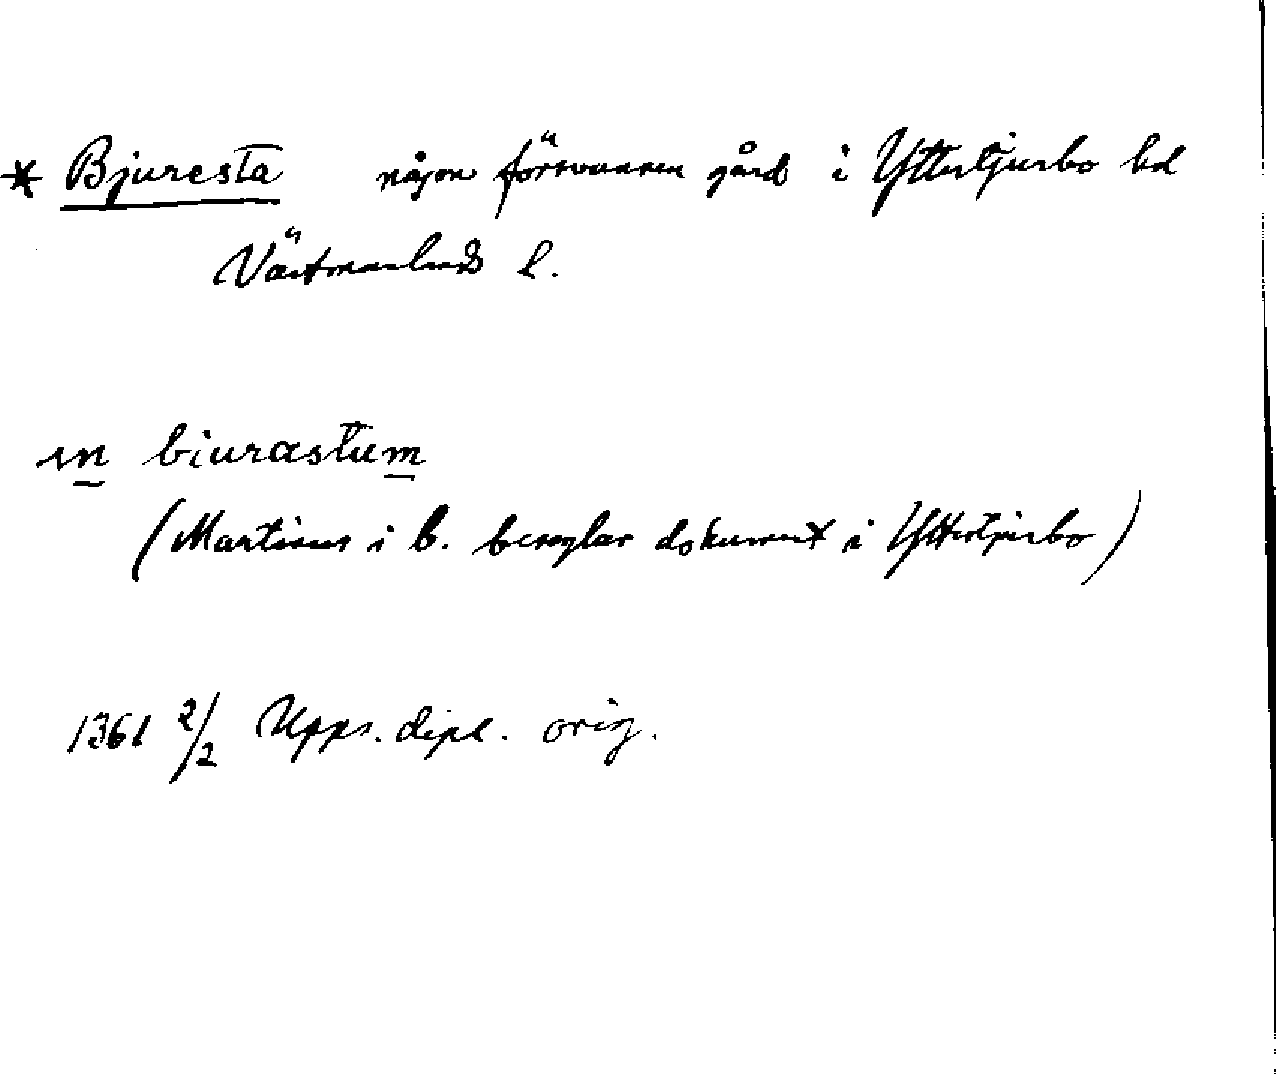 * Bjuresta någon försvunnen gård i Yttertjurbo hd
Västmanlands l.
in biurastum
(Martinus i b. beseglar dokument i Yttertjurbo)
1361 2/2 Upps. dipl. orig.